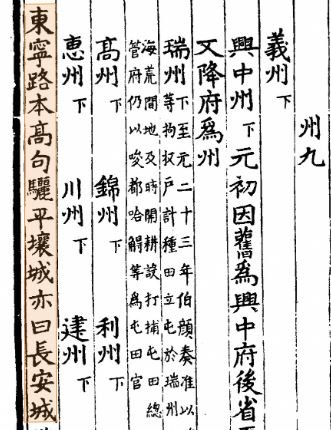 州九
義州下
興中州下元初因舊爲興中府後省
又降府爲州
瑞州下至元二十三年伯顔奏准以
等拘収戶計種田立屯於瑞州
海荒閒地及時開耕設打捕屯田總
管府仍以唆都哈䚟等爲屯田官
高州下 錦州下 利州下
惠州下 川州下 建州下
東寧路本髙句驪平壤城亦曰長安城